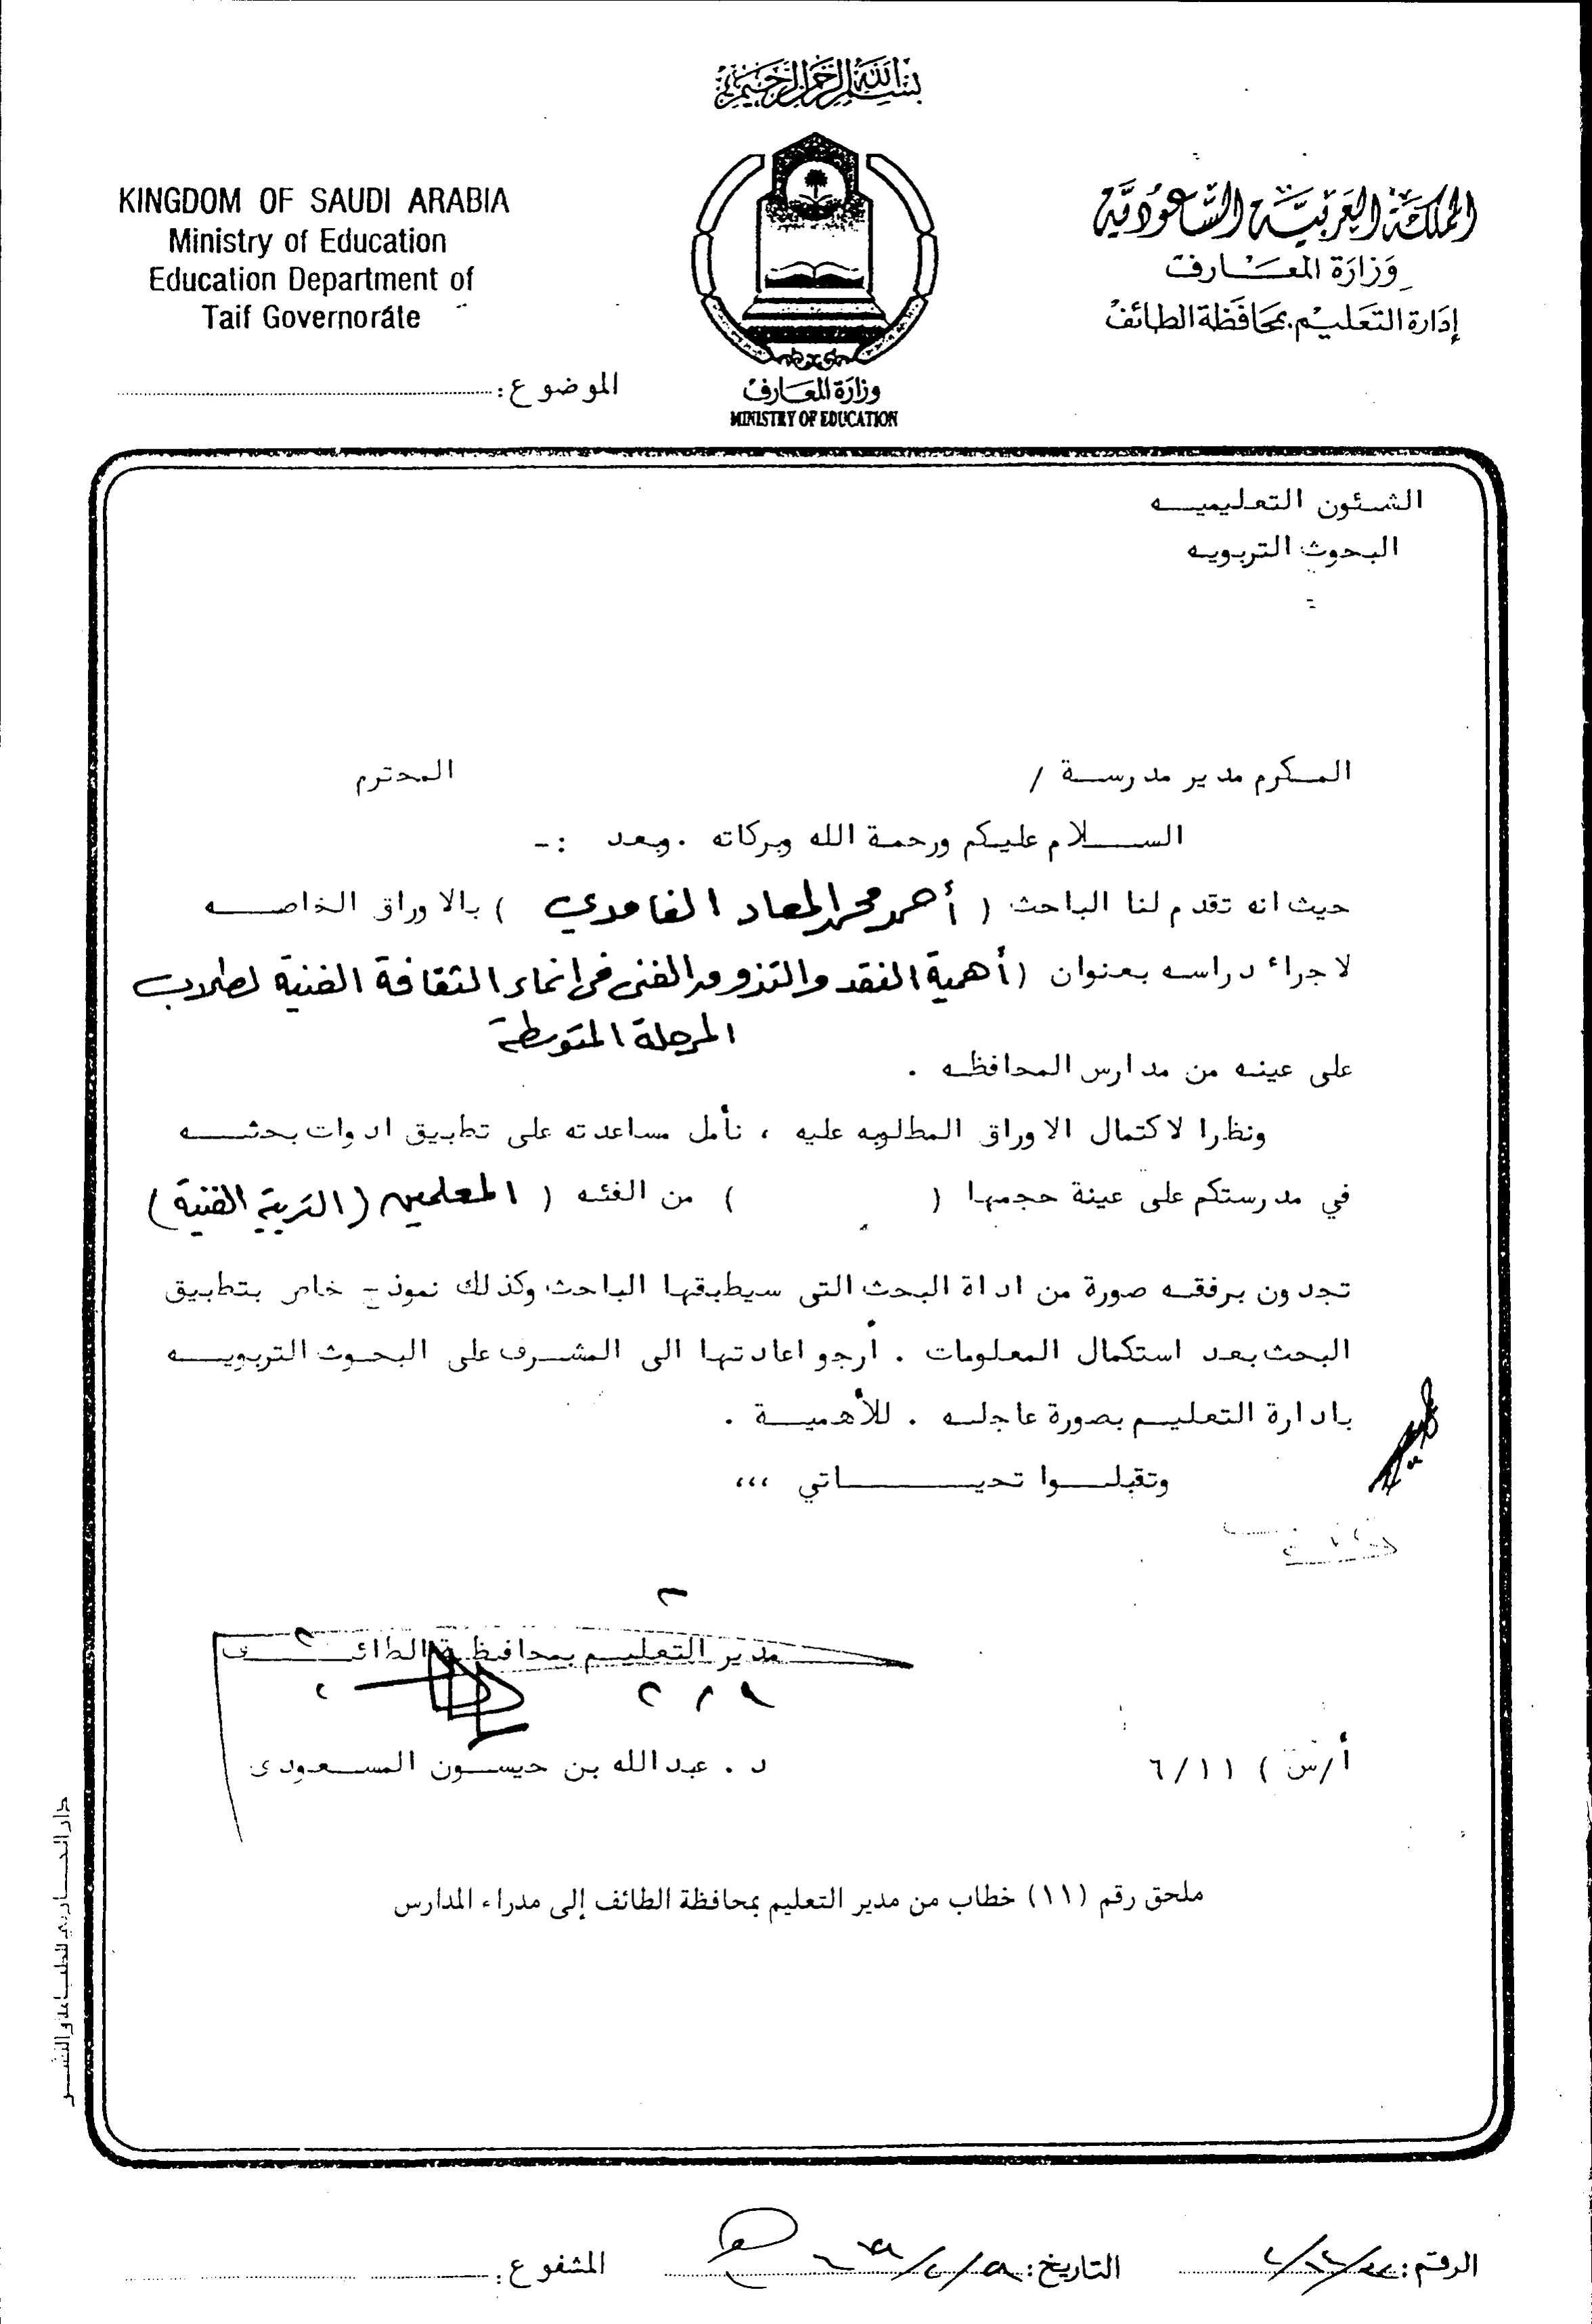 بسم الله الرحمن الرحيم
المملكة العربية السعودية
وزارة المعارف
إدارة التعليم بمحافظة الطائف
KINGDOM OF SAUDI ARABIA
Ministry of Education
Education Department of
Taif Governorate
وزارة المعارف
MINISTRY OF EDUCATION
الموضوع:
الشئون التعليميـــه
البحوث التربويه
المـكرم مدير مدرســة / المحترم
الســـلام عليـكم ورحمـة الله وبركاته . وبعد :-
حيث انه تقدم لنا الباحث ( أحمد محمد المعاد الغامدي ) بالاوراق الخاصــه
لاجراء دراسه بعنوان ( أهمية النقد والتذوق الفني في إنماء الثقافة الفنية لطلاب
المرحلة المتوسطة
على عينه من مدارس المحافظـه .
ونظرا لاكتمال الاوراق المطلوبه عليه ، نأمل مساعدته على تطبيق ادوات بحثــه
في مدرستكم على عينة حجمها ( ) من الفئه ( المعلمين (التربية الفنية)
تجدون برفقـه صورة من اداة البحث التى سيطبقها الباحث وكذلك نموذج خاص بتطبيق
البحث بعد استكمال المعلومات . أرجو اعادتها الى المشـرف على البحـوث التربويـــه
بادارة التعليـم بصورة عاجلـه . للأهميــة .
وتقبلـــوا تحيـــــــاتي ،،،
مدير التعليـم بمحافظـة الطائـــــف
د . عبدالله بن حيســون المســعودى
أ/س ) ٦/١١
ملحق رقم (١١) خطاب من مدير التعليم بمحافظة الطائف إلى مدراء المدارس
الرقم:
التاريخ:
المشفوع: